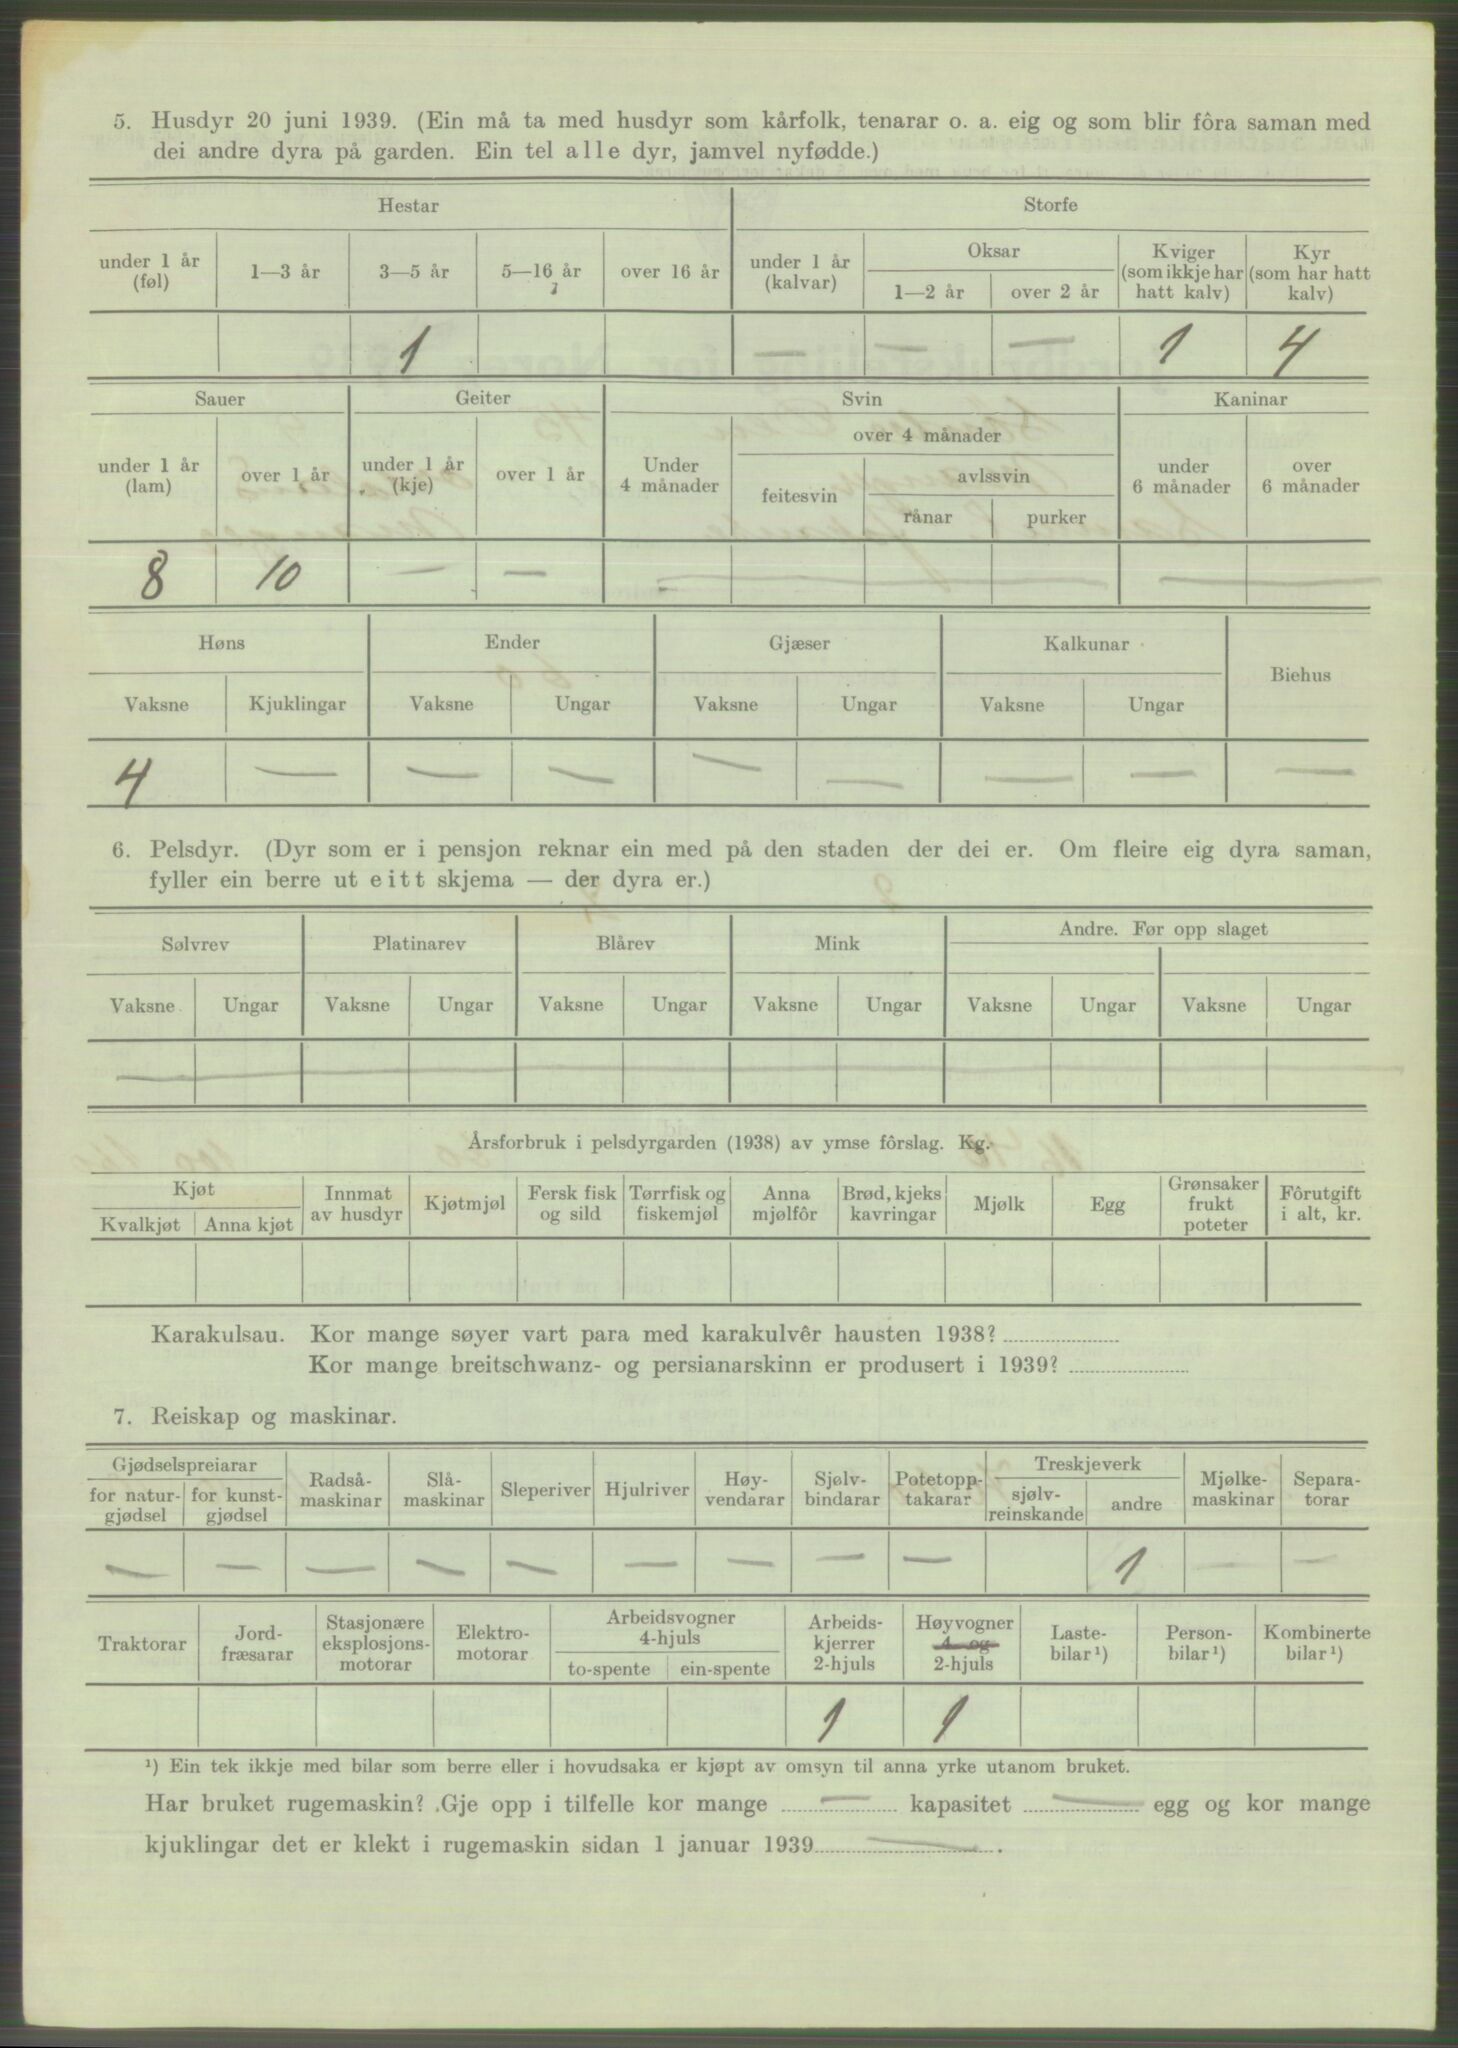 5. Husdyr 20 juni 1939. (Ein må ta med husdyr som kårfolk, tenarar o. a. eig og som blir fôra saman med
dei andre dyra på garden. Ein tel alle dyr, jamvel nyfødde.)
Hestar Storfe
under 1 år (føl) 1—3 år 3—5 år 5—16 år over 16 år under 1 år (kalvar) Oksar 1—2 år over 2 år Kviger (som ikkje har hatt kalv) Kyr (som har hatt kalv)
1 — — — 1 4
Sauer Geiter Svin Kaninar
under 1 år (lam) over 1 år under 1 år (kje) over 1 år Under 4 månader over 4 månader feitesvin avlssvin rånar purker under 6 månader over 6 månader
8 10 — — — —
Høns Ender Gjæser Kalkunar Biehus
Vaksne Kjuklingar Vaksne Ungar Vaksne Ungar Vaksne Ungar
4 — — — — — — — —
6. Pelsdyr. (Dyr som er i pensjon reknar ein med på den staden der dei er. Om fleire eig dyra saman,
fyller ein berre ut eitt skjema — der dyra er.)
Sølvrev Platinarev Blårev Mink Andre. Før opp slaget
Vaksne Ungar Vaksne Ungar Vaksne Ungar Vaksne Ungar Vaksne Ungar Vaksne Ungar
—
Årsforbruk i pelsdyrgarden (1938) av ymse fôrslag. Kg.
Kjøt Kvalkjøt Anna kjøt Innmat av husdyr Kjøtmjøl Fersk fisk og sild Tørrfisk og fiskemjøl Anna mjølfôr Brød, kjeks kavringar Mjølk Egg Grønsaker frukt poteter Fôrutgift i alt, kr.
Karakulsau. Kor mange søyer vart para med karakulvêr hausten 1938?
Kor mange breitschwanz- og persianarskinn er produsert i 1939?
7. Reiskap og maskinar.
Gjødselspreiarar for natur-gjødsel for kunst-gjødsel Radså-maskinar Slå-maskinar Sleperiver Hjulriver Høy-vendarar Sjølv-bindarar Potetopp-takarar Treskjeverk sjølv-reinskande andre Mjølke-maskinar Separa-torar
— — — — — — — — — 1 — —
Traktorar Jord-fræsarar Stasjonære eksplosjons-motorar Elektro-motorar Arbeidsvogner 4-hjuls to-spente ein-spente Arbeids-kjerrer 2-hjuls Høyvogner 4- og 2-hjuls Laste-bilar¹) Person-bilar¹) Kombinerte bilar¹)
1 1
¹) Ein tek ikkje med bilar som berre eller i hovudsaka er kjøpt av omsyn til anna yrke utanom bruket.
Har bruket rugemaskin? Gje opp i tilfelle kor mange — kapasitet — egg og kor mange
kjuklingar det er klekt i rugemaskin sidan 1 januar 1939 — .